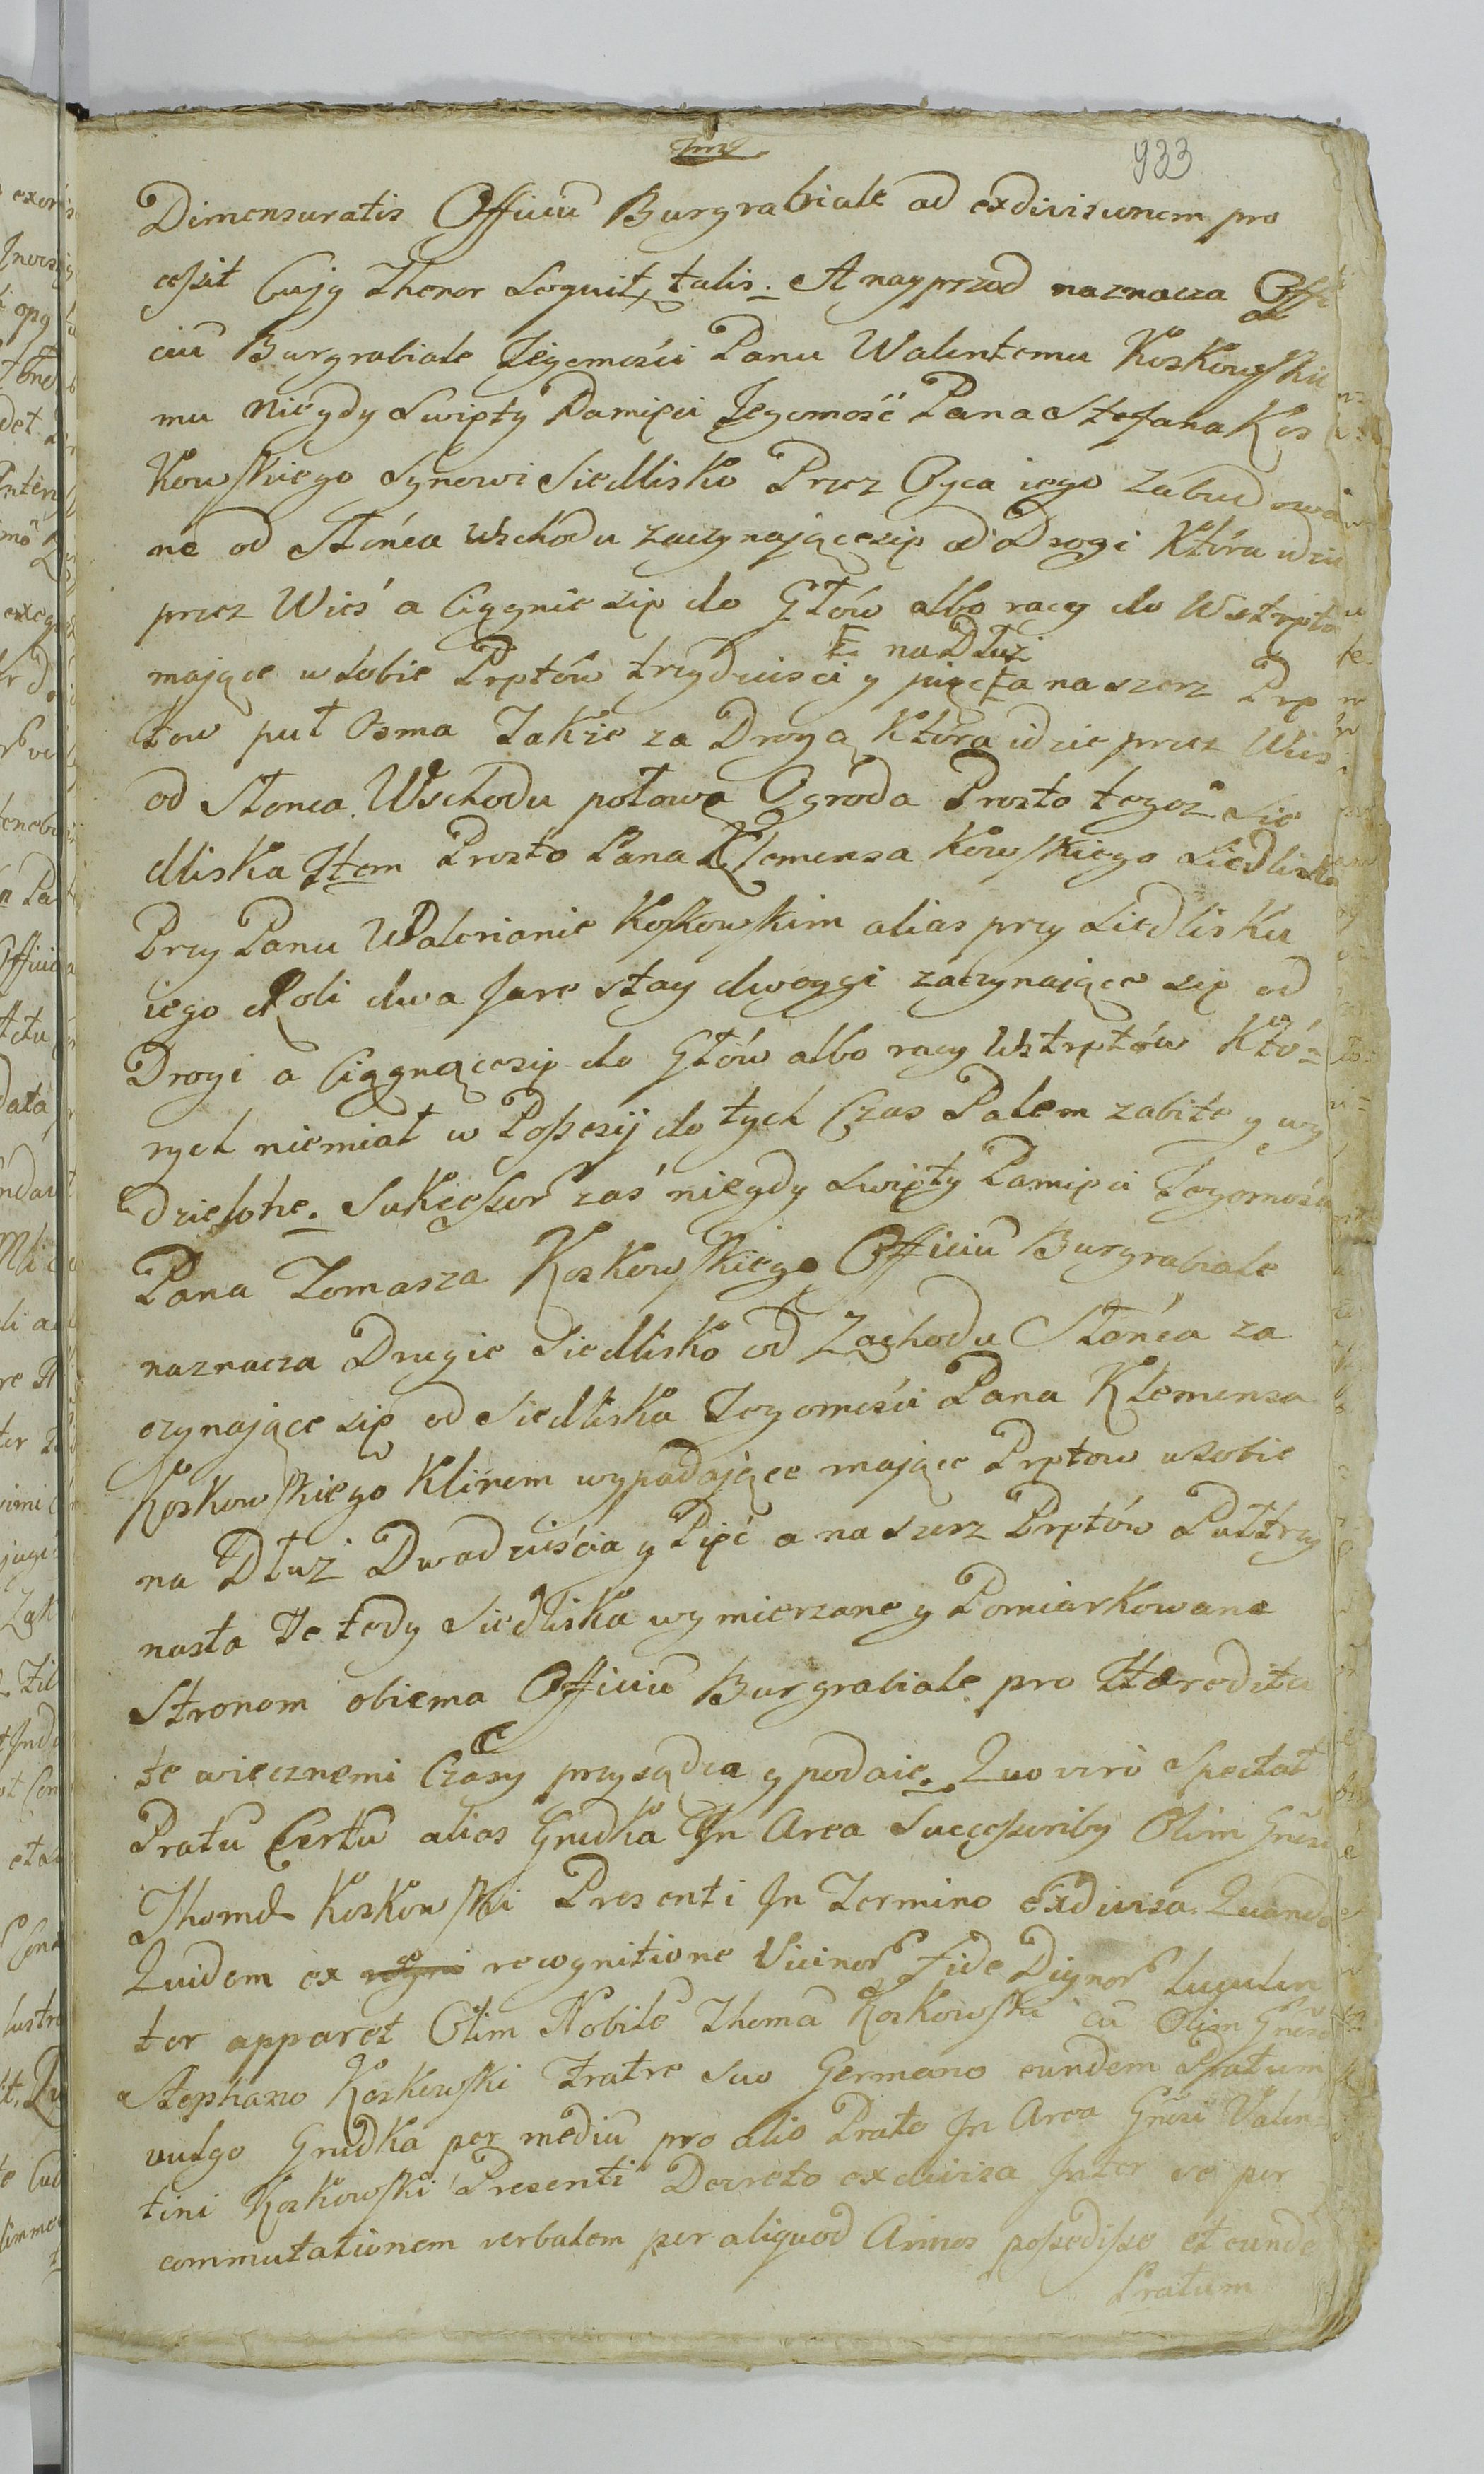 933
Dimensuratis Officiū Burgrabiale ad exdivisionem pro
cessit Cujg Thenor Loquit, talis. A nayprzod naznacza Offi
ciū Burgrabiale Jegomości Panu Walentemu Koskowskie
mu niegdy Swięty Pamięci Jegomość Pana Stefana Kos
kowskiego Synowi Siedlisko Przez Oyca iego zabudowa
ne od Słońca Wschodu zaczynaiącesię od Drogi Która idzie
przez Wieś a Ciągnie się do Głów albo racy do Wstępto
E na Dłuż
maiące w Sobie Pręptów trzydziści y piącia na szerz Pręp
tow puł Osma Także za Drogą Ktora idzie przez Wieś
od Słonca Wschodu połowę Ogroda Prosto tegoż Sie
dliska Item Prosto Pana Klemensa Kowskiego Siedliska
Przy Panu Walerianie Koskowskim alias przy Siedlisku
iego Roli dwa Jare stay dwoygi zaczynaiące się od
Drogi a Ciągnącesię do Głów albo racy Wstęptów Któ=
rych niemiał w Possesij do tych Czas Palem zabite y wy
dzielone. Sukcessor zaś niegdy Swięty Pamięci Jegomości
Pana Tomasza Koskowskiego Officiū Burgrabiale
naznacza Drugie Siedlisko od Zachodu Słońca za
czynaiące się od Siedliska Jegomości Pana Klemensa
Koskowskiego Klinem wypadaiące maiące Pręptow wsobie
na Dłuż Dwadziścia y Pięć a na szerz Pręptów Pułtrzy
nasta Te tedy Siedliska wymierzane y Pomiarkowane
Stronom obiema Officiū Burgrabiale pro Hærodita
te wiecznemi Czasy przysądza y podaie. Quo vero Spectat
Pratū Certū alias Grudka In Area Successoriby Olim Gnesi
Thomæ Koskowski Presenti In Termino exdivisa Quando
Quidem ex recognitione Vicinor Fide Dignor luculen
ter apparet Olim Nobilē Thomā Koskowski cū Olim Gneso
Stephano Koskowski Fratre Suo Germano eundem Pratum
vulgo Grudka per mediū pro alio Prato In Area Gnesi Valen
tini Koskowski Presenti Decreto exdivisa Inter se per
commutationem verbalem per aliquod Annos possedisse et eunde
Pratum